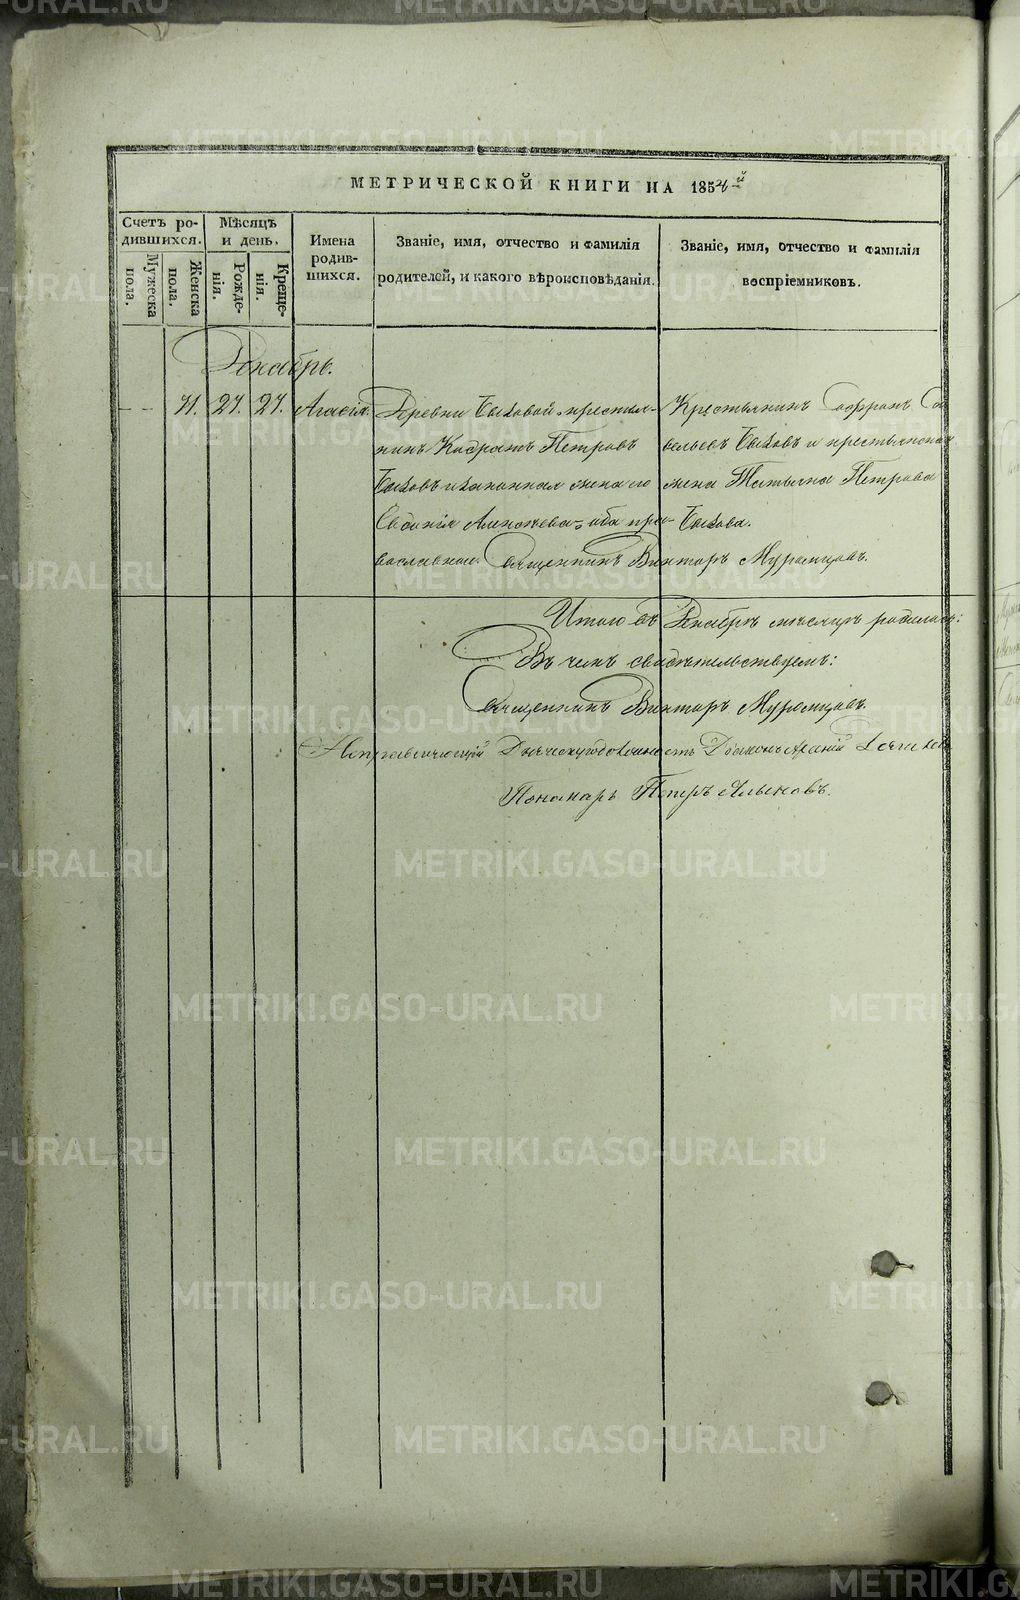 МЕТРИЧЕСКОЙ КНИГИ НА 1854й
Счетъ родившихся.
Мужеска пола.
Женска пола.
Мѣсяцъ и день.
Рожденія.
Крещенія.
Имена родившихся.
Званіе, имя, отчество и фамилія
родителей, и какого вѣроисповѣданія.
Званіе, имя, отчество и фамилія
воспріемниковъ.
Декабрь.
71. 27. 27. Агафія.
Деревни Быковой крестья-
нинъ Кодратъ Петровъ
Быковъ и законная жена его
Евдокія Алексѣева, оба пра-
вославные.
Крестьянинъ Софронъ Са-
вельевъ Быковъ и крестьянская
жена Татьяна Петрова
Быкова.
Священникъ Викторъ Муромцовъ.
Итого въ Декабрѣ мѣсяцѣ родилось:
Въ чемъ свидѣтельствуемъ:
Священникъ Викторъ Муромцовъ.
Исправляющій Дьяческую должность Діаконъ
Пономарь Петръ
METRIKI.GASO-URAL.RU